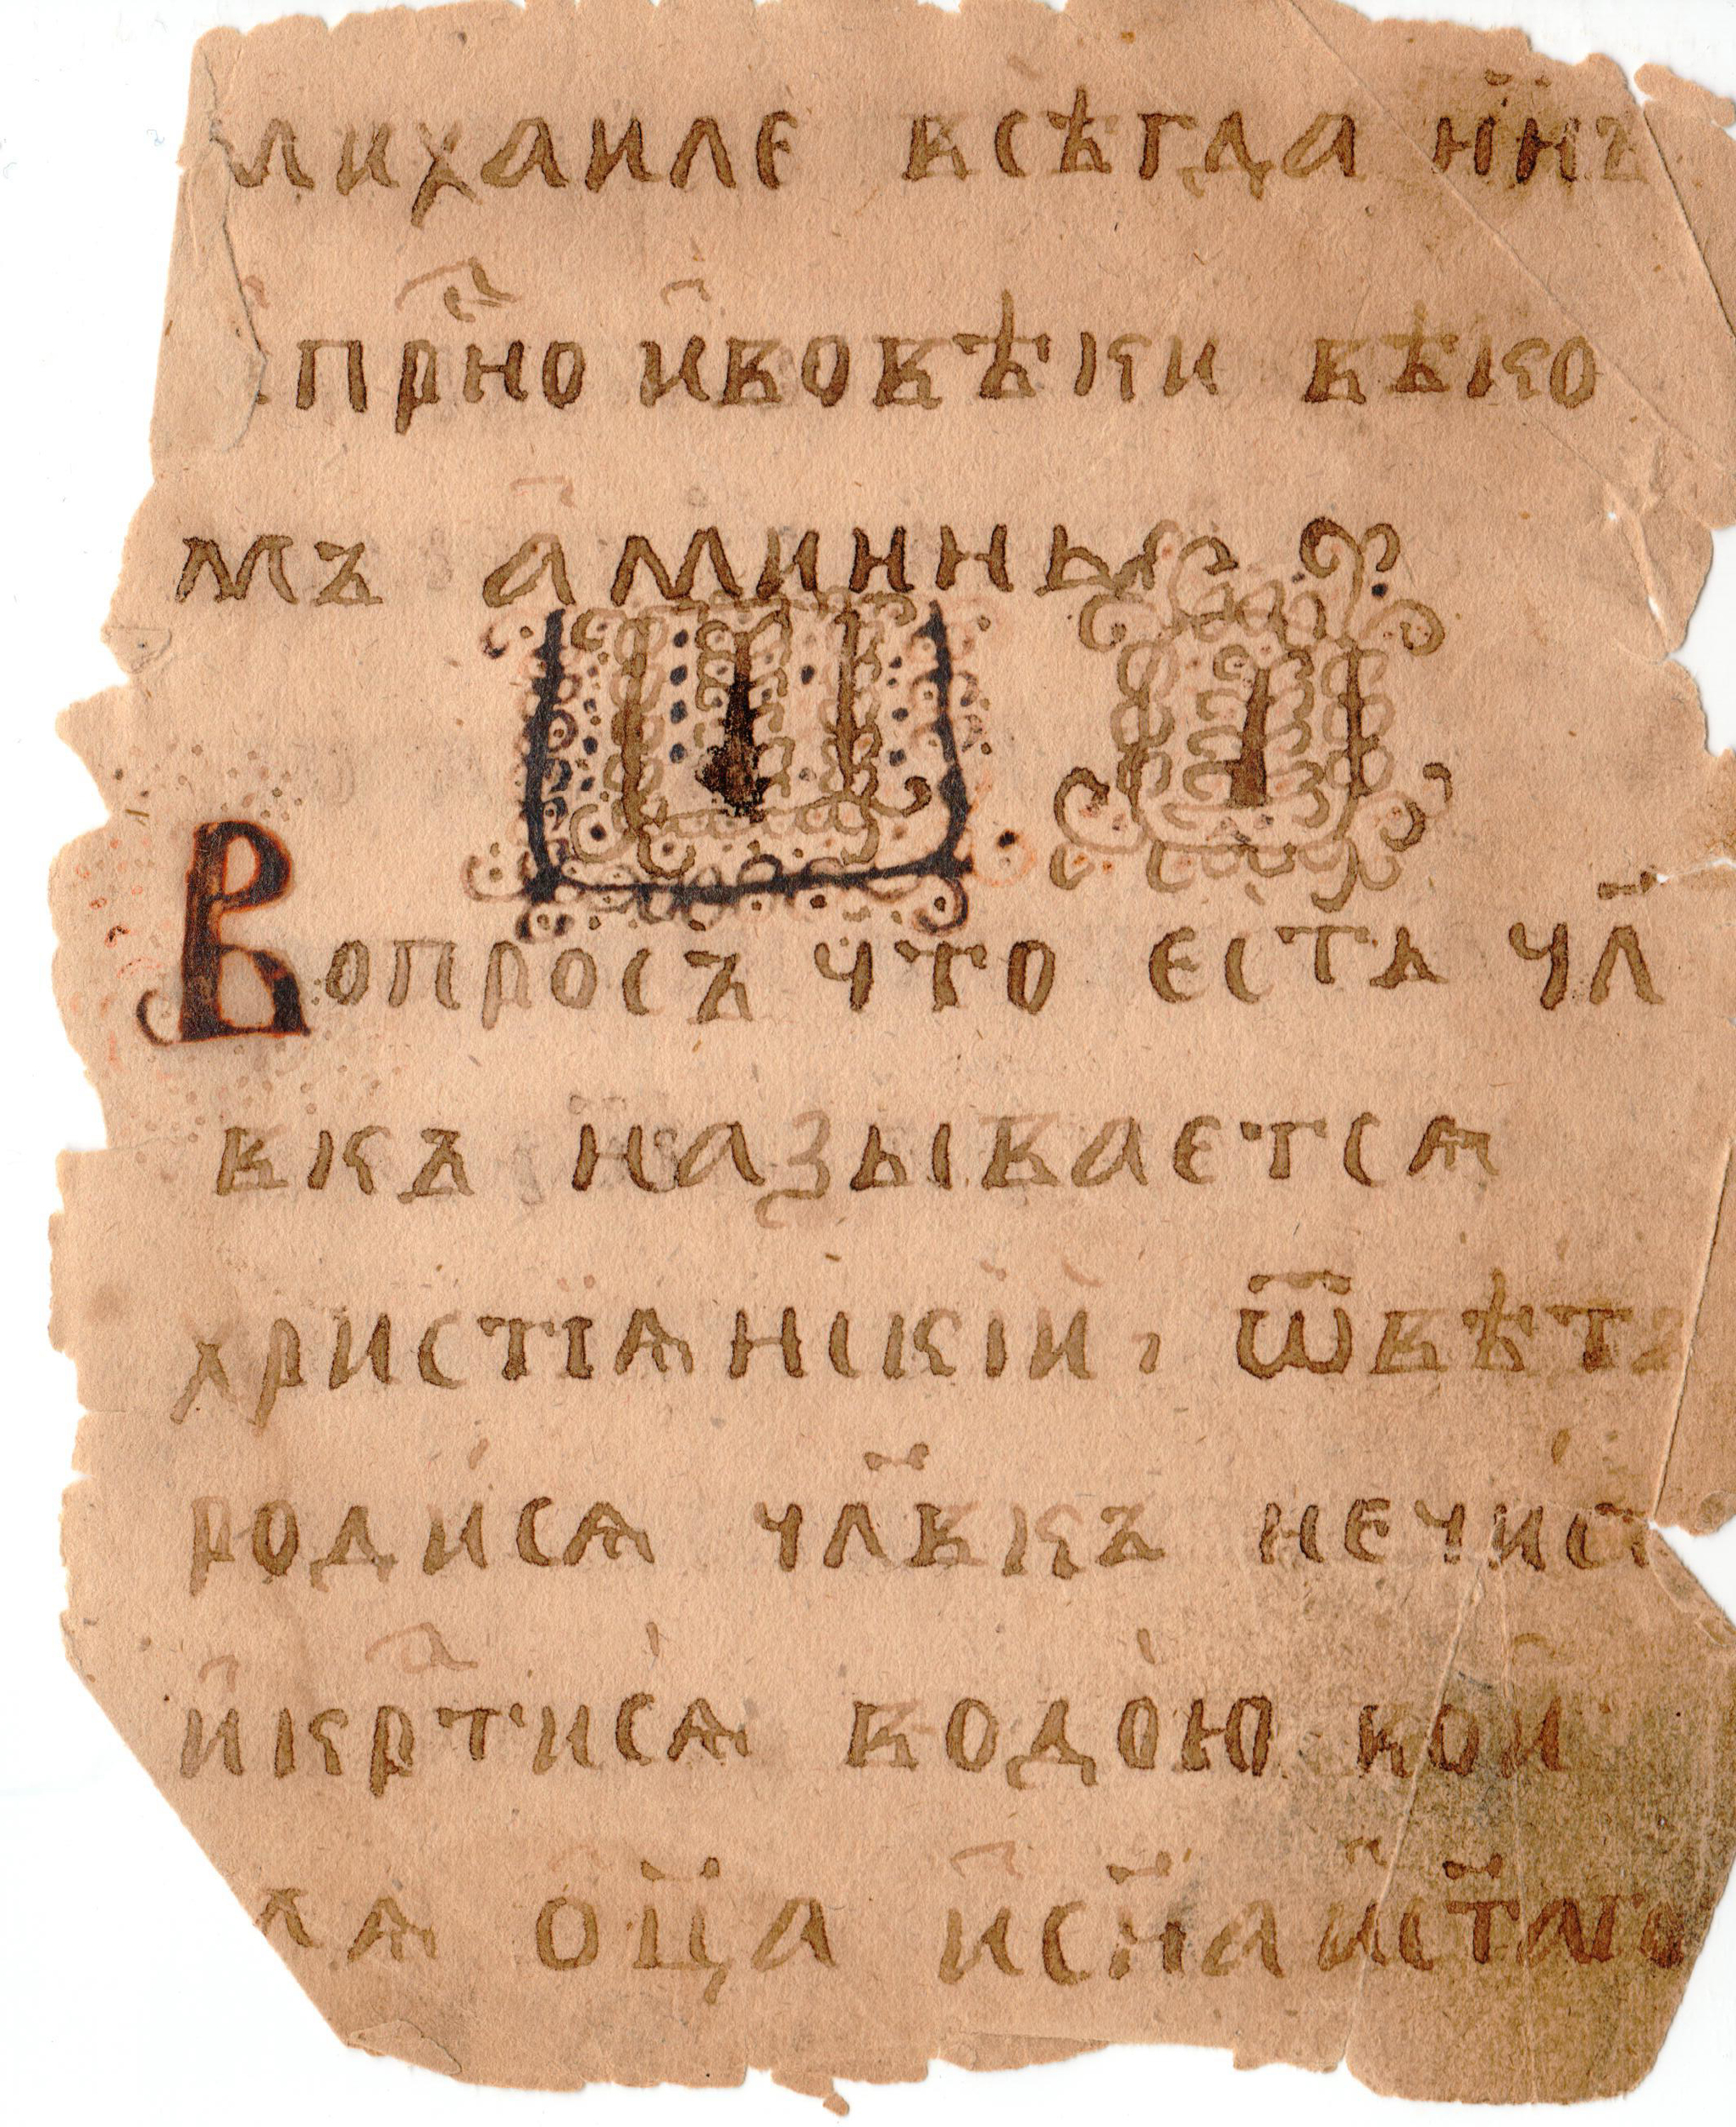 михаиле всѣгда н҃нѣ
прⷭ҇но ивовѣки вѣко
мъ аминнь
Вопросъ что естъ чл҃
вкъ называется
христїянскїй, ѿвѣтъ
роди́ся чл҃вкъ нечис
и҆крⷭ҇тися водо́ю во и҆
мя ѻц҃а и҆сн҃а и҆ст҃аго